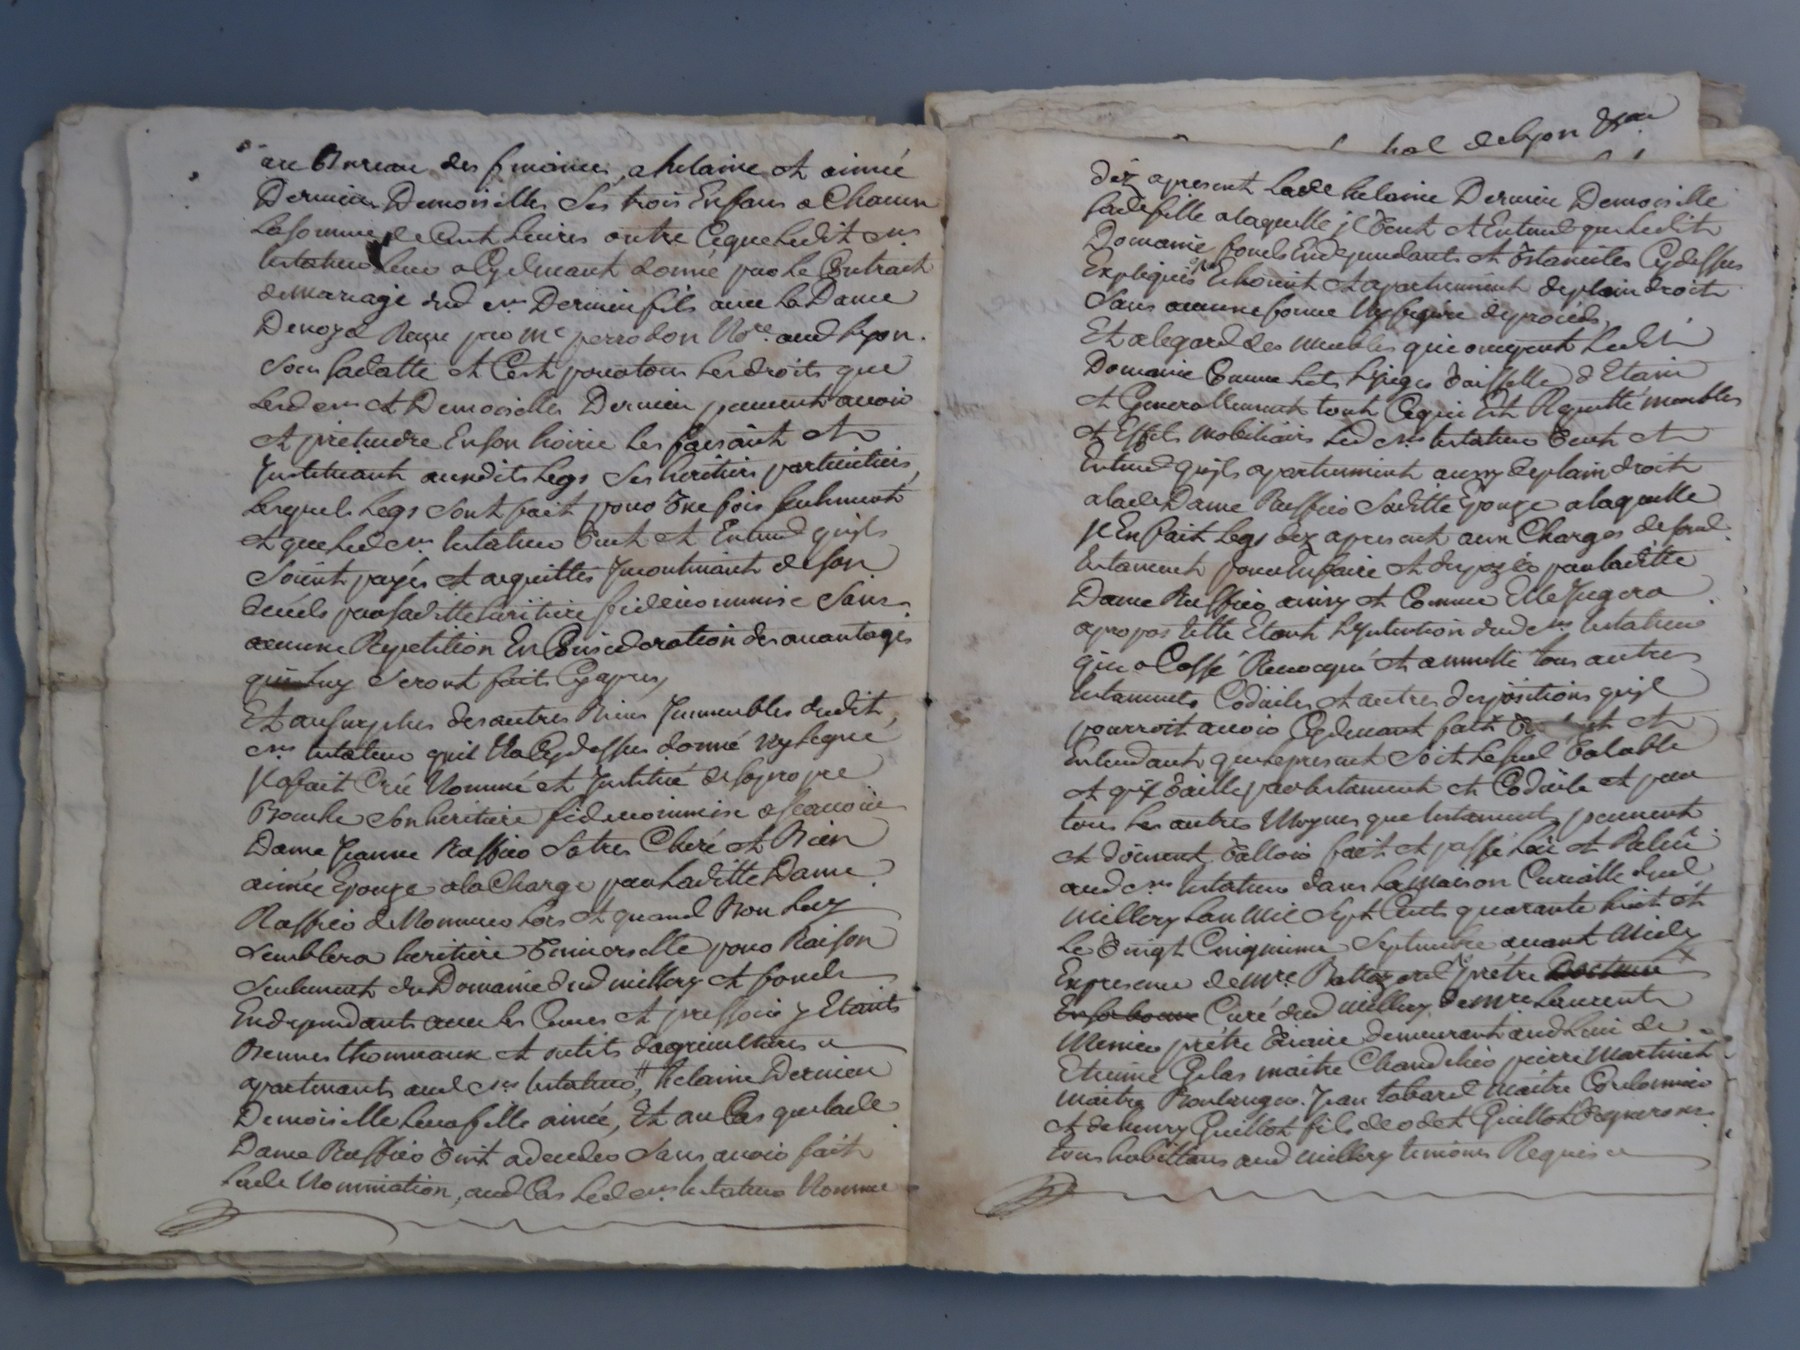 au Bureau des finances, a helaine et aimée
Dernieu Demoiselles Ses trois Enfans a Chacun
La Somme de Cent Livres outre Ceque Ledit Sr.
testateur Leur a Cydevant donné par Le Contract
de mariage dud Sr. Dernieu fils avec La Dame
Reçeu par Me perrodon No.re aud Lyon.
Sous Sa datte et C'est pour tous Les droits que
Lesd Sr. et Demoiselles Dernieu peuvent avoir
et pretendre En Son hoirie Les faisant et
Instituant auxdits Legs Ses heritiers particuliers,
Lesquels Legs Sont fait pour Une fois Seulement
et que Led Sr. testateur Veut et Entend quils
Soient payés et acquittés Incontinant de Son
decéds par Sa ditte heritiere fideicommise Sans
aucune Repetition En Consideration des avantages
qui Luy Seront fait Cy apres,
Et au Surplus des autres Biens Immeubles dudit
Sr. testateur quil N'a Cydessus donné ny Legué
Il a fait Créé Nommé et Institué de Sa propre
Bouche Son heritiere fideicommise a Scavoir
Dame Jeanne Ruffier Sa tres Chere et Bien
aimée Epouze a la Charge par Laditte Dame
Ruffier de Nommer Lors et quand Bon Luy
Semblera heritiere Universelle pour Raison
Seulement du Domaine dud millery et fonds
En dependants avec Les Cuves et pressoir y Etants
Bennes thonneaux et outils d'agricultures
apartenants aud Sr. testateur, helaine Dernieu
Demoiselle Leur fille ainée, Et au Cas que Lade
Dame Ruffier Vint a deceder Sans avoir fait
Lade Nomination, aud Cas Led Sr. testateur Nomme
hal de Lyon
déz apresent Lade helaine Dernieu Demoiselle
Sade fille a laquelle il Veut et Entend que Ledit
Domaine fonds En dependants et Ustancilles Cydessus
Expliqués Echoient et apartiennent de plain droit
Sans aucune forme Ny figure de procéds,
Et a legard des meubles qui occupent Ledit
Domaine Comme Lits Linges Vaisselles d'Etain
et Generallement tout Cequi Est Reputté meubles
et Effets mobiliairs Led Sr. testateur Veut et
Entend quils apartiennent aussy de plain droit
a lade Dame Ruffier Saditte Epouze a laquelle
Il En fait Legs dez apresent aux Charges de Sond.
testament pour En faire et disposer par laditte
Dame Ruffier ainsy et Comme Elle Jugera
apropos telle Etant L'Intention dud Sr. testateur
qui a Cassé Revocqué et annullé tous autres
testaments Codicilles et autres dispositions quil
pourroit avoir Cydevant fait et
Entendant que le present Soit Le Seul Valable
et qu'il Vaille par testament et Codicile et par
tous Les autres Moyens que testaments peuvent
et doivent Valloir fait et passé Leu et Releu
aud Sr. testateur dans La Maison Curialle dud
Millery L'an Mil Sept Cents quarante huit et
Le Vingt Cinquieme Septembre avant Midy
En presence de Mre. prétre Docteur
En Sorbonne Curé dud Millery, de Mre Laurent
Menier prétre Vicaire demeurant aud Lieu de
Etienne Gelas maitre Chandelier pierre Martinet
maitre Boulanger. Jean tabard Maitre Cordonnier
et de henry Guillot fils de odet Guillot Vignerons
tous habittans aud Millery temoins Requis